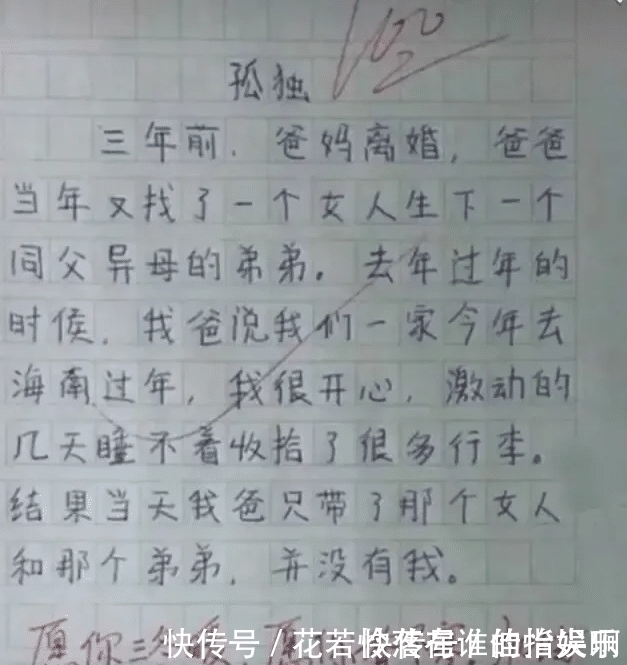 100
孤独
三年前.爸妈离婚,爸爸
当年又找了一个女人生下一个
同父异母的弟弟。去年过年的
时侯.我爸说我们一家今年去
海南过年,我很开心,激动的
几天睡不着收拾了很多行李。
结果当天我爸只带了那个女人
和那个弟弟,并没有我。
愿你三
快传号/花若